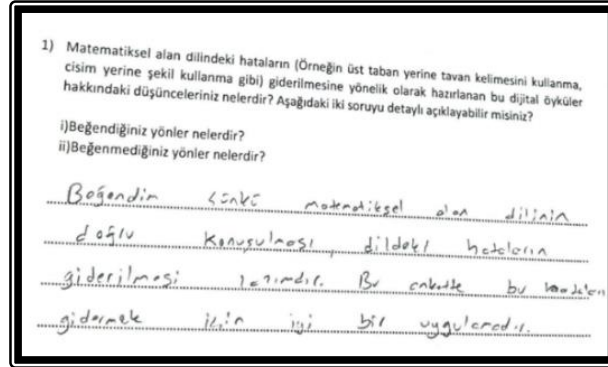 1) Matematiksel alan dilindeki hataların (Örneğin üst taban yerine tavan kelimesini kullanma,
cisim yerine şekil kullanma gibi) giderilmesine yönelik olarak hazırlanan bu dijital öyküler
hakkındaki düşünceleriniz nelerdir? Aşağıdaki iki soruyu detaylı açıklayabilir misiniz?
i)Beğendiğiniz yönler nelerdir?
ii)Beğenmediğiniz yönler nelerdir?
Beğendim çünkü matematiksel alan dilinin
doğru konuşulması, dildeki hataların
giderilmesi lazımdır. Bu ankette bu hataları
gidermek için iyi bir uygulamadır.